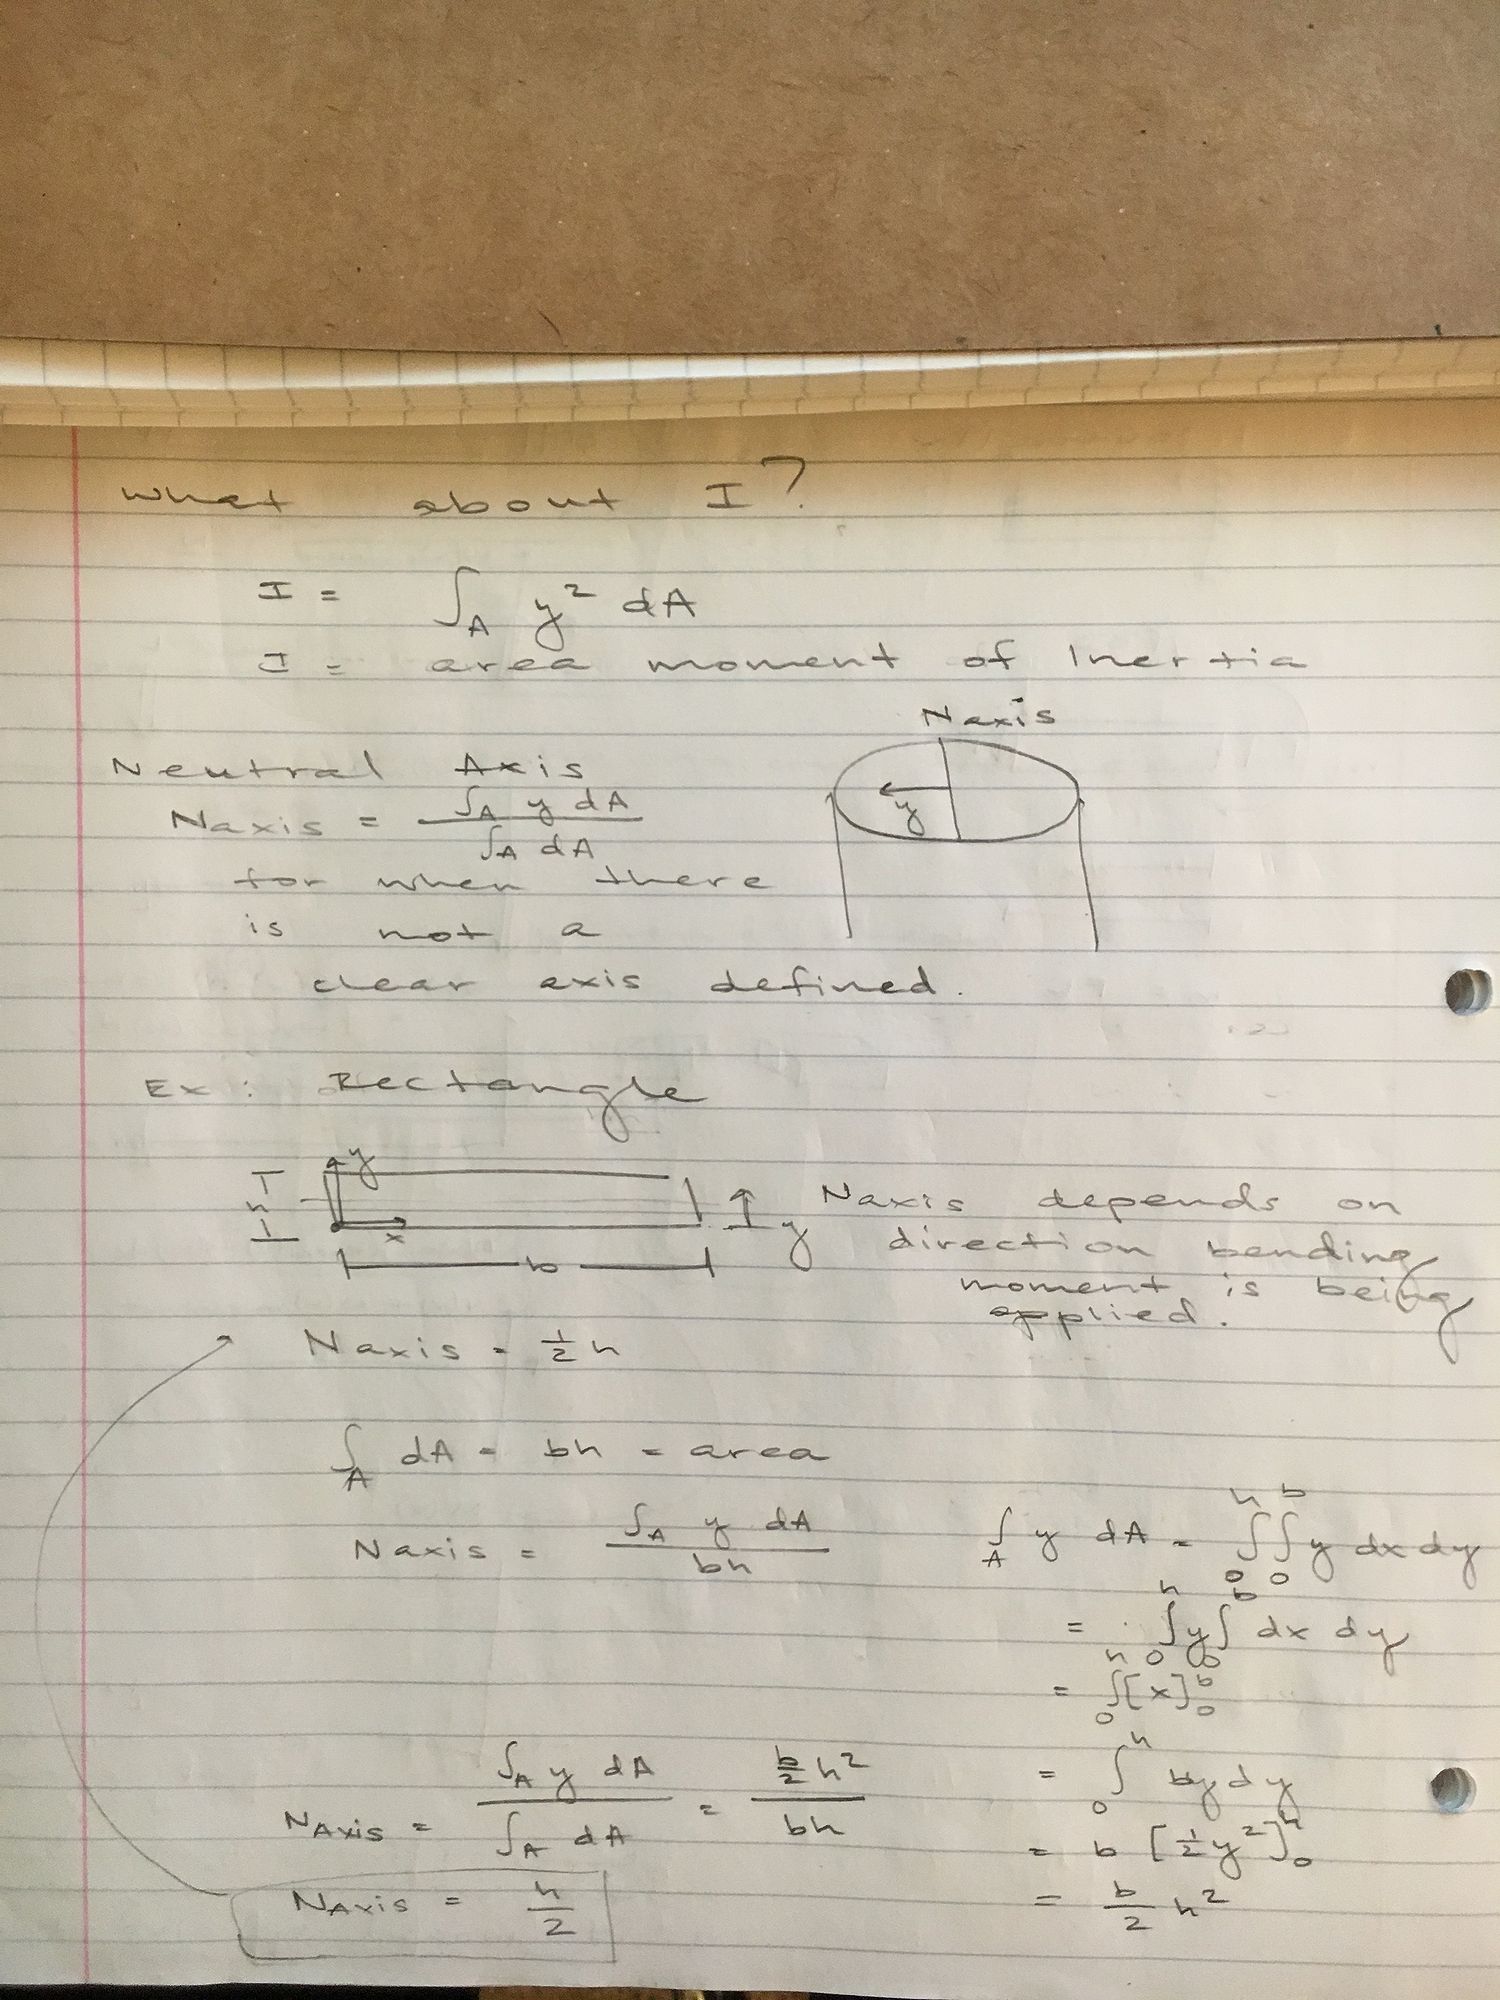 What about I?
I = ∫A y² dA
I = area moment of Inertia
Naxis
Neutral Axis
Naxis = ∫A y dA / ∫A dA
y
for when there
is not a
clear axis defined.
Ex: Rectangle
y
h
x
y
b
Naxis depends on
direction bending
moment is being
applied.
Naxis = ½ h
∫A dA = bh = area
Naxis = ∫A y dA / bh
∫A y dA = ∫0^h ∫0^b y dx dy
= ∫0^h y ∫0^b dx dy
= ∫0^h [x]0^b
= ∫0^h by dy
= b [½ y²]0^h
= b/2 h²
NAxis = ∫A y dA / ∫A dA = b/2 h² / bh
NAxis = h/2